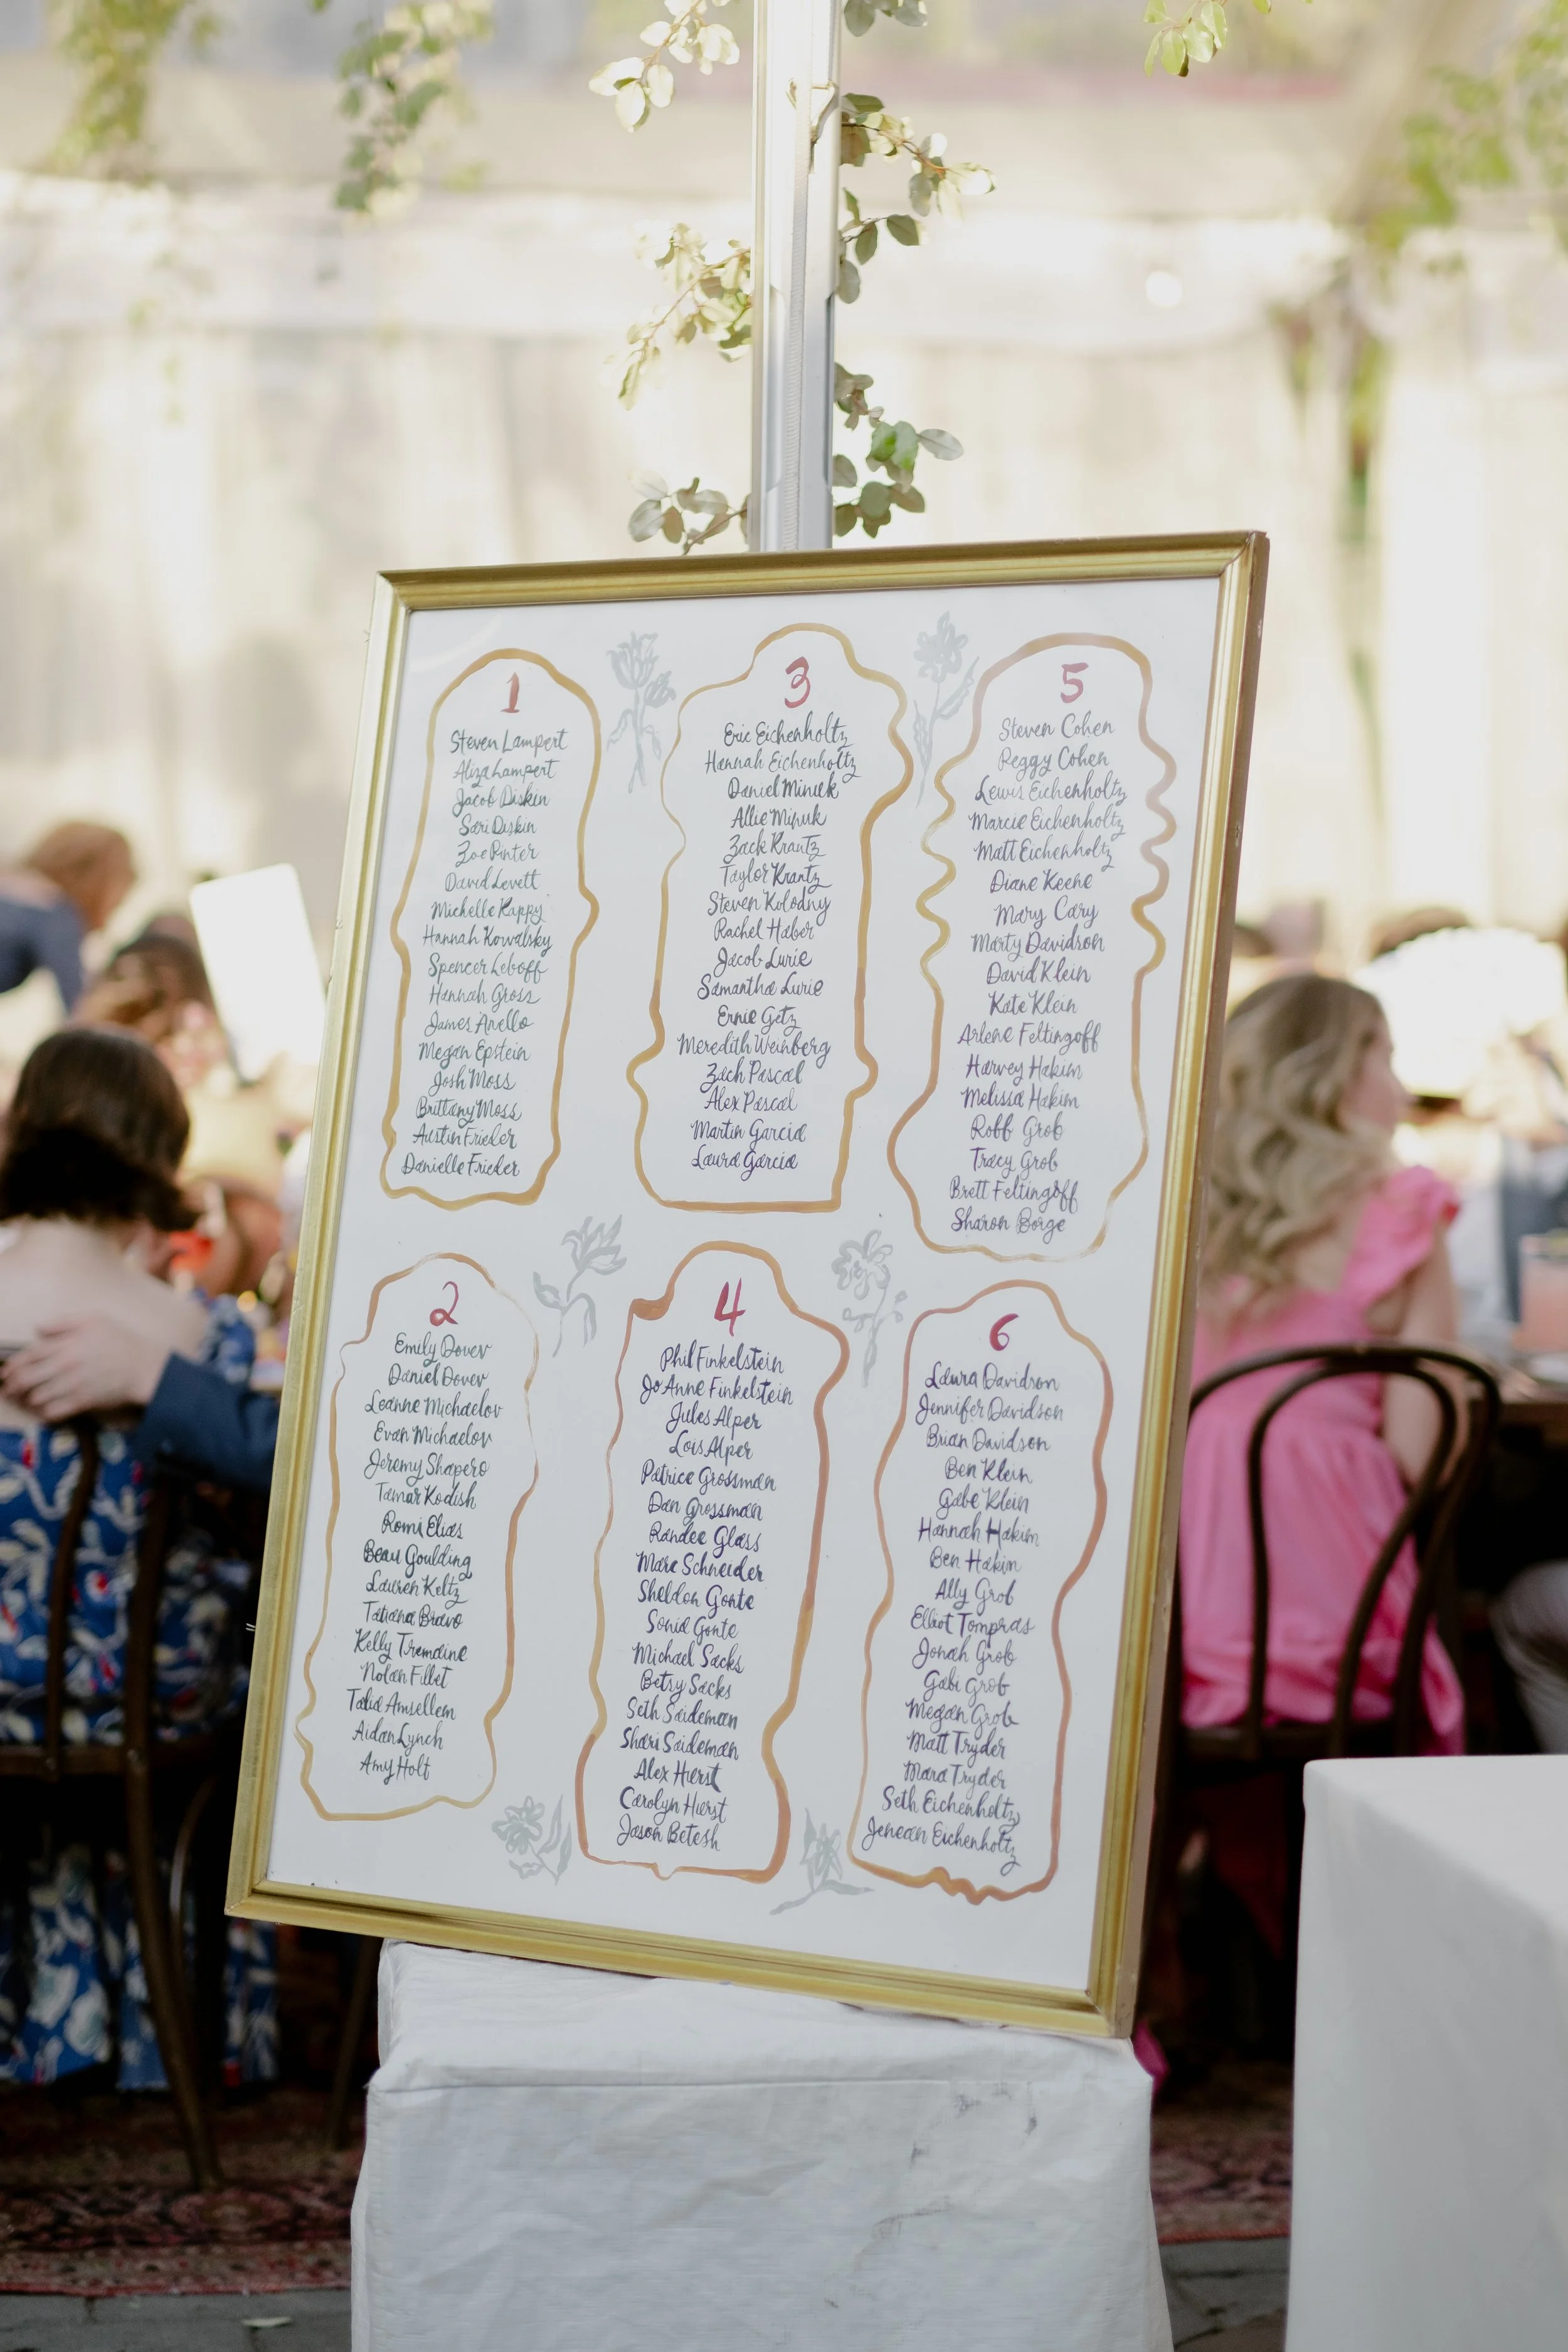 1
Steven Lampert
Aliza Lampert
Jacob Diskin
Sari Diskin
Zoe Pinter
David Levett
Michelle Kappy
Hannah Kowalsky
Spencer Leboff
Hannah Gross
James Anello
Megan Epstein
Josh Moss
Brittany Moss
Austin Frieder
Danielle Frieder
2
Emily Dover
Daniel Dover
Leanne Michaelov
Evan Michaelov
Jeremy Shapero
Tamar Kodish
Romi Elias
Beau Goulding
Lauren Keltz
Tatiana Bravo
Kelly Tremaine
Nolan Fillet
Talia Amsellem
Aidan Lynch
Amy Holt
3
Eric Eichenholtz
Hannah Eichenholtz
Daniel Minuk
Allie Minuk
Zack Krantz
Taylor Krantz
Steven Kolodny
Rachel Haber
Jacob Lurie
Samantha Lurie
Ernie Getz
Meredith Weinberg
Zach Pascal
Alex Pascal
Martin Garcia
Laura Garcia
4
Phil Finkelstein
JoAnne Finkelstein
Jules Alper
Lois Alper
Patrice Grossman
Dan Grossman
Randee Glass
Marc Schneider
Sheldon Gonte
Sonia Gonte
Michael Sacks
Betsy Sacks
Seth Saideman
Shari Saideman
Alex Hurst
Carolyn Hurst
Jason Betesh
5
Steven Cohen
Peggy Cohen
Lewis Eichenholtz
Marcie Eichenholtz
Matt Eichenholtz
Diane Keene
Mary Cary
Marty Davidson
David Klein
Kate Klein
Arlene Feltingoff
Harvey Hakim
Melissa Hakim
Robb Grob
Tracy Grob
Brett Feltingoff
Sharon Borge
6
Laura Davidson
Jennifer Davidson
Brian Davidson
Ben Klein
Gabe Klein
Hannah Hakim
Ben Hakim
Ally Grob
Elliot Tompras
Jonah Grob
Gabi Grob
Megan Grob
Matt Tryder
Mara Tryder
Seth Eichenholtz
Jenean Eichenholtz